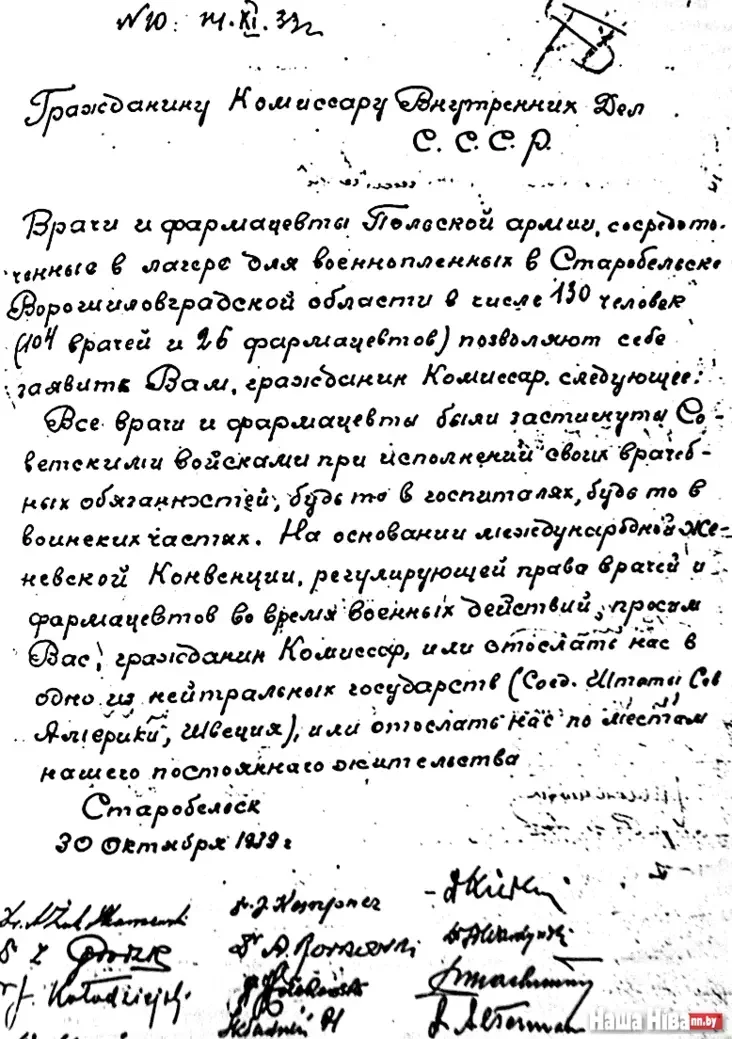 Гражданину Комиссару Внутренних Дел
С. С. С. Р.
Врачи и фармацевты Польской армии, сосредото-
ченные в лагере для военнопленных в Старобельске
Ворошиловградской области в числе 130 человек
(104 врачей и 26 фармацевтов) позволяют себе
заявить Вам, гражданин Комиссар. следующее:
Все врачи и фармацевты были застигнуты Со-
ветскими войсками при исполнений своих врачеб-
ных обязанностей, будь то в госпиталях, будь то в
воинских частях. На основании международной Же-
невской Конвенции, регулирующей права врачей и
фармацевтов во время военных действий, просим
Вас, гражданин Комиссар, или отослать нас в
одно из нейтральных государств (Соед. Штаты Сев
Америки, Швеция), или отослать нас по местам
нашего постояннаго жительства
Старобельск
30 Октября 1939 г
Dr J. Kempner
J. Kołodziejski
J. Alterman
Наша Ніва nn.by